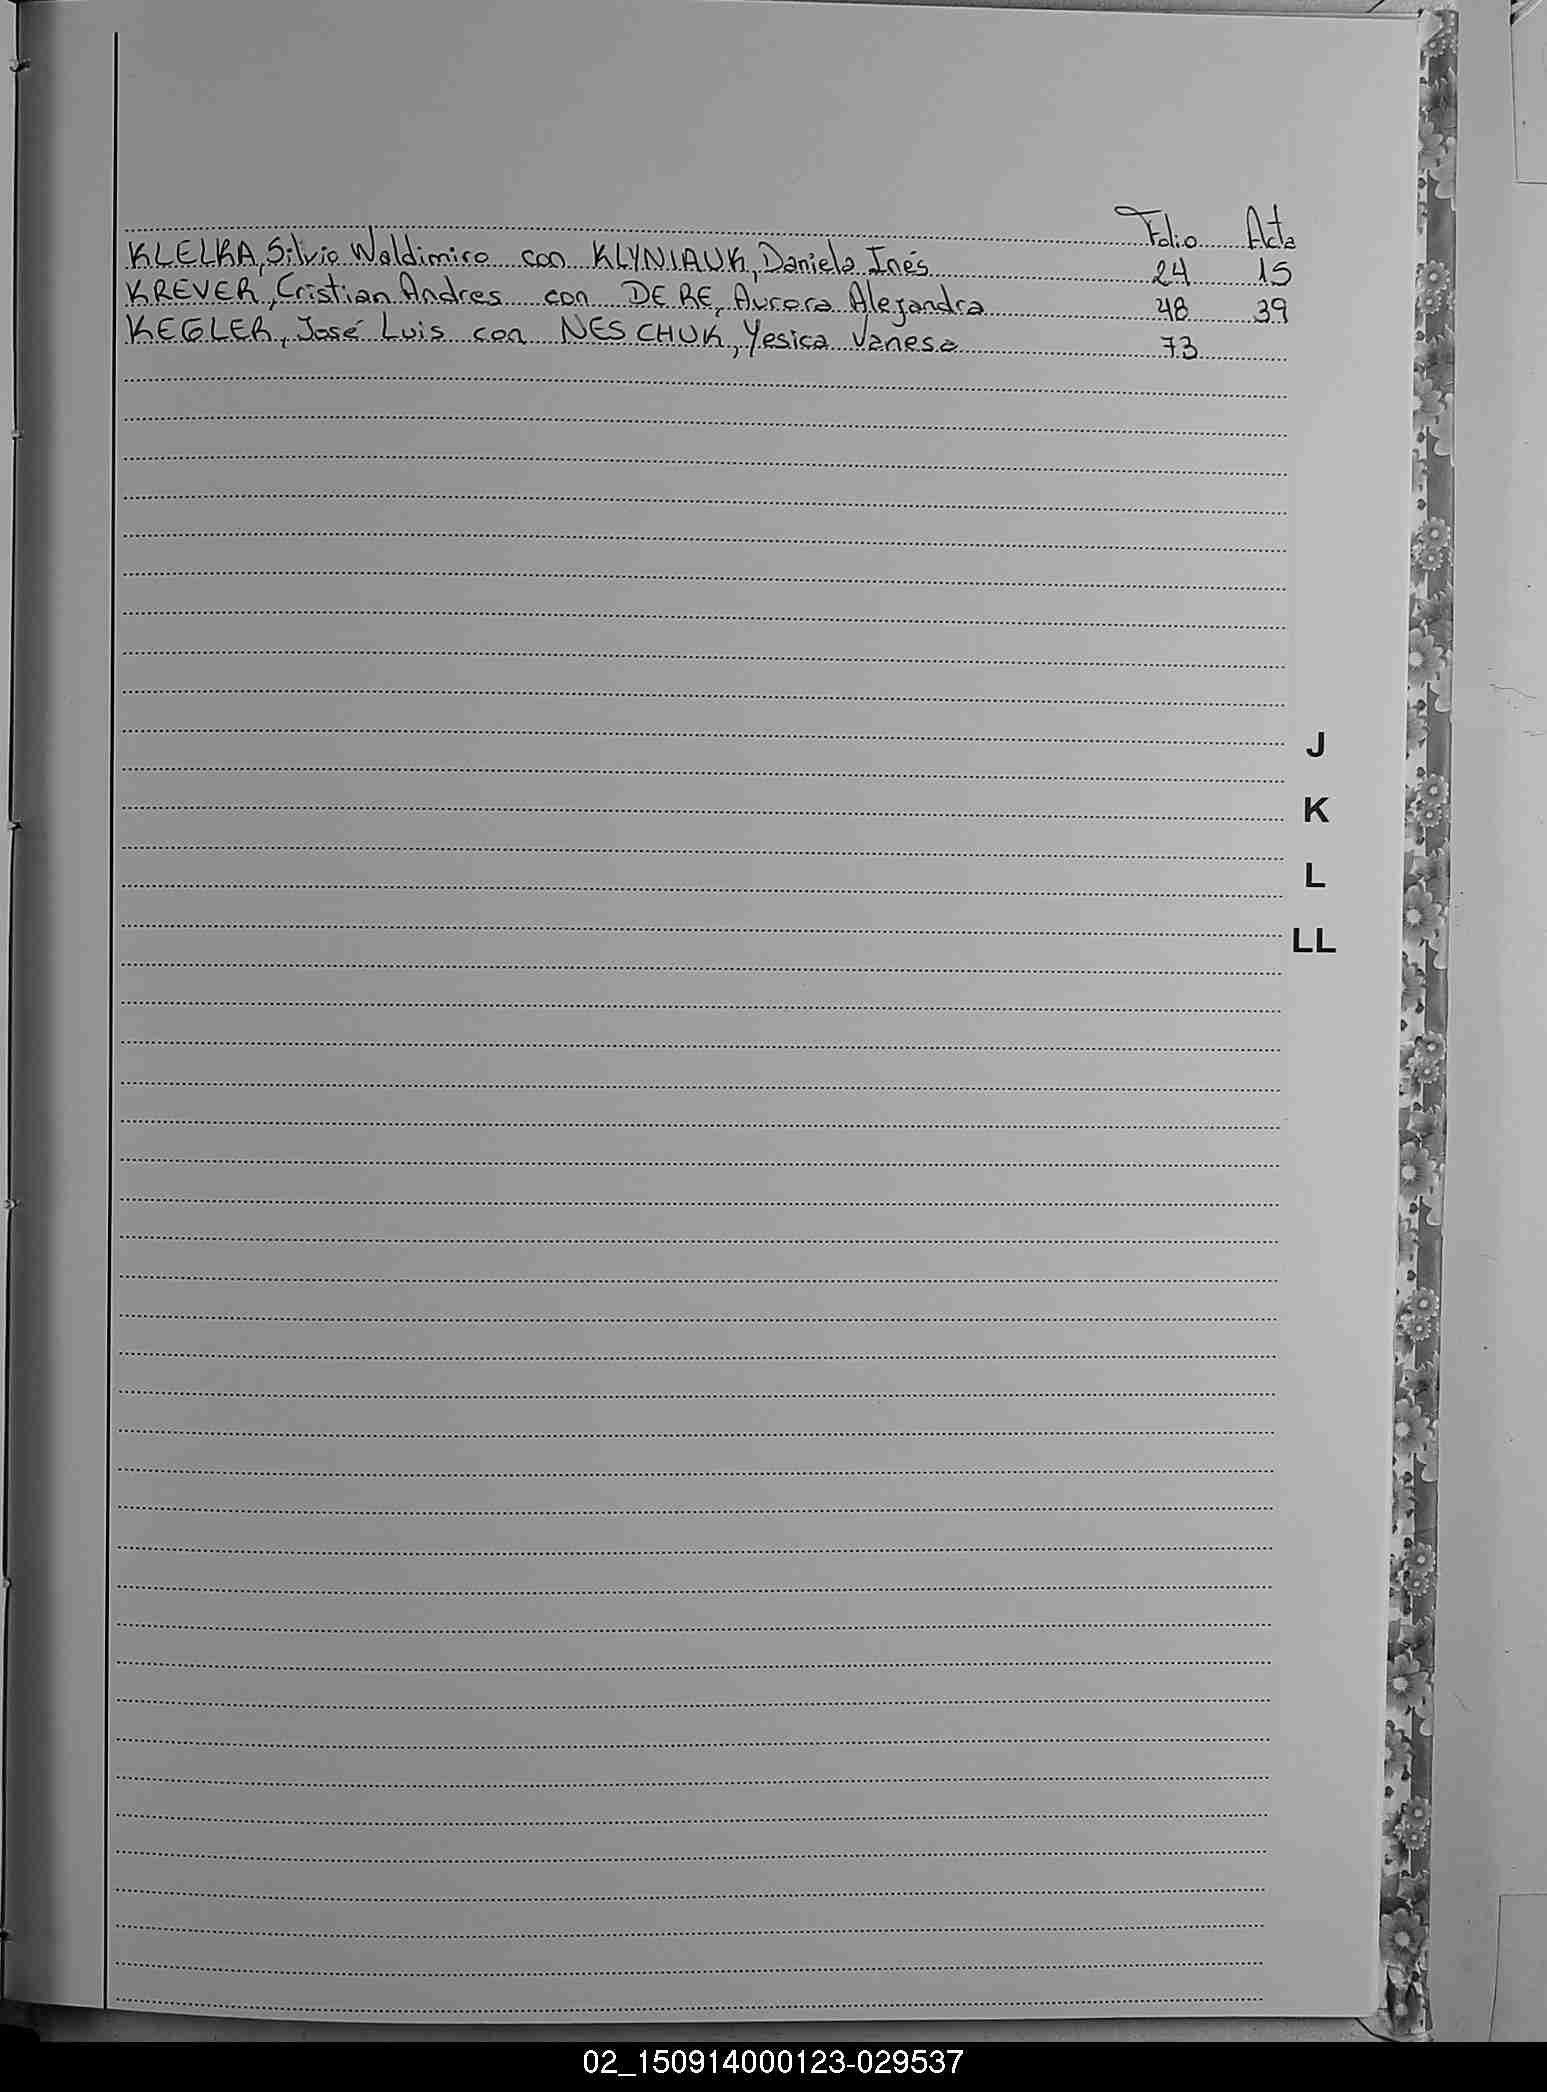 Folio Acta
KLELKA, Silvio Waldimiro con KLYNIAUK, Daniela Inés 24 15
KREVER, Cristian Andres con DE RE, Aurora Alejandra 48 39
KEGLER, José Luis con NESCHUK, Yesica Vanesa 73
J
K
L
LL
02_150914000123-029537